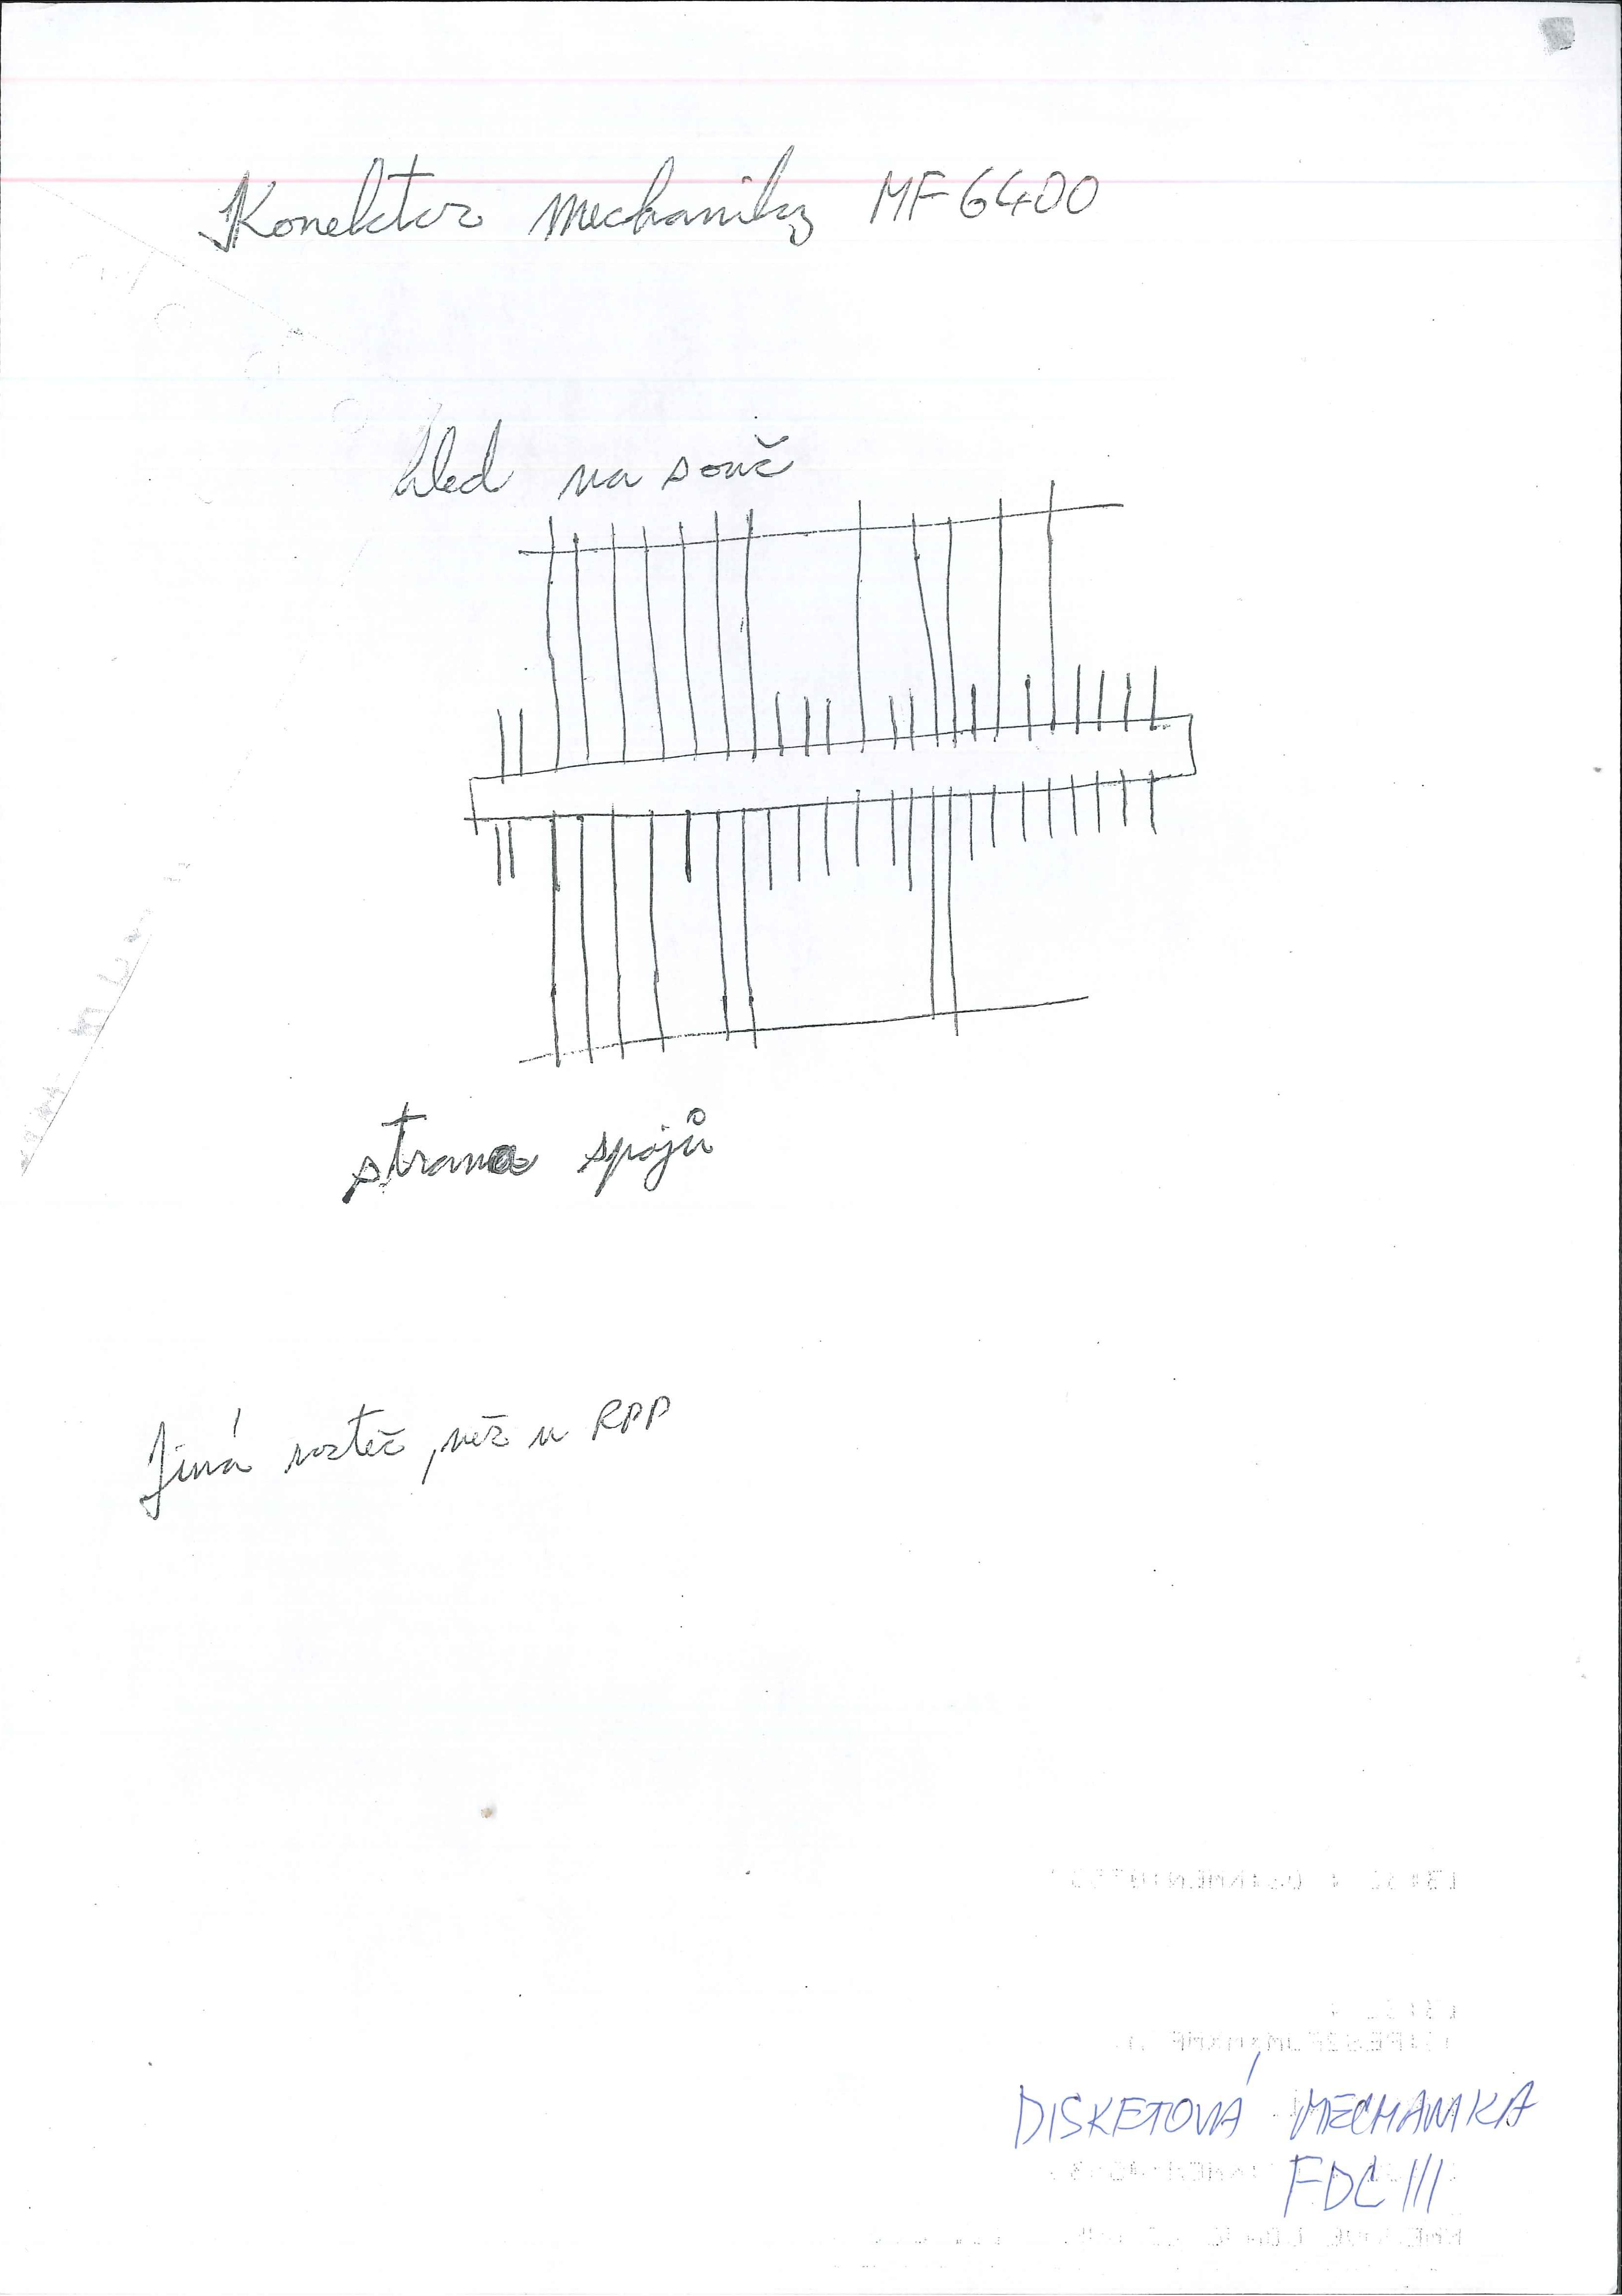 Konektor mechaniky MF 6400
hled na souč
strana spojů
Jiná rozteč, než u RPP
DISKETOVÁ MECHANIKA
FDC III